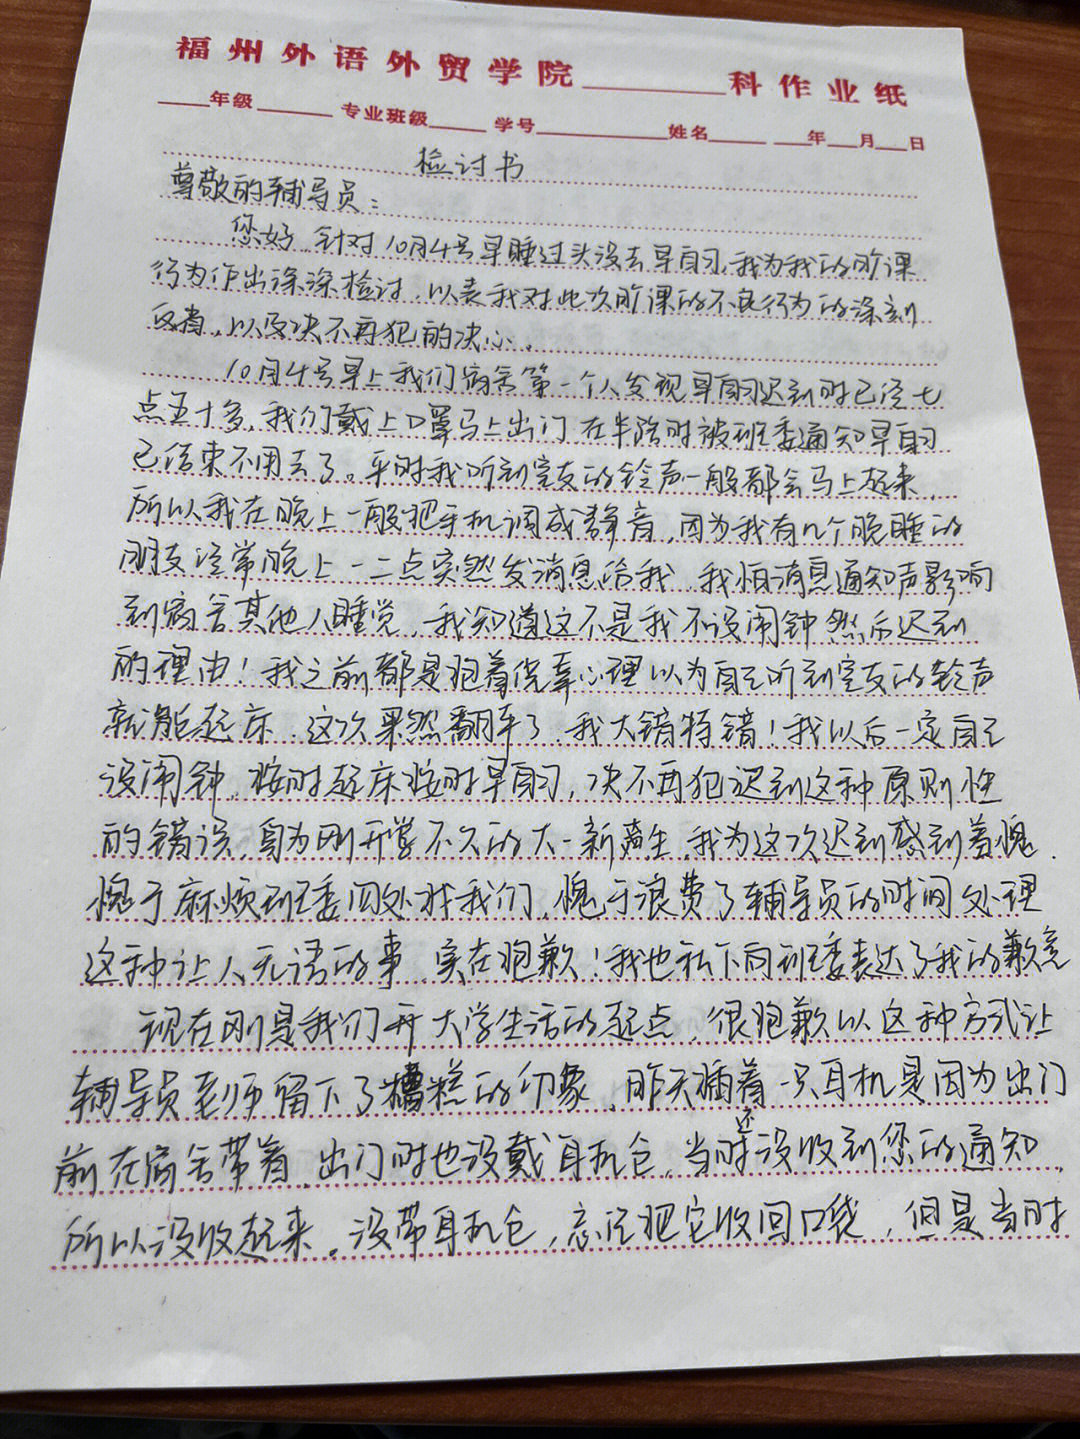 福州外语外贸学院________科作业纸
____年级______ 专业班级_____ 学号__________ 姓名_____ ____年___月___日
检讨书
尊敬的辅导员：
您好，针对10月4号早睡过头没去早自习，我为我的旷课
行为作出深深检讨，以表我对此次旷课的不良行为的深刻
反省，以及决不再犯的决心。
10月4号早上我们宿舍第一个人发现早自习迟到时已经七
点五十多，我们戴上口罩马上出门在半路时被班委通知早自习
已结束不用去了。平时我听到室友的铃声一般都会马上起来，
所以我在晚上一般把手机调成静音，因为我有几个晚睡的
朋友经常晚上一二点突然发消息给我，我怕消息通知声影响
到宿舍其他人睡觉，我知道这不是我不设闹钟然后迟到
的理由！我之前都是抱着侥幸心理以为自己听到室友的铃声
就能起床，这次果然翻车了，我大错特错！我以后一定自己
设闹钟，按时起床按时早自习，决不再犯迟到这种原则性
的错误，身为刚开学不久的大一新生，我为这次迟到感到羞愧，
愧于麻烦班委回处我们，愧于浪费了辅导员的时间处理
这种让人无语的事，实在抱歉！我也私下向班委表达了我的歉意
现在刚是我们开大学生活的起点，很抱歉以这种方式让
辅导员老师留下了糟糕的印象，昨天插着一只耳机是因为出门
前在宿舍带着，出门时也没戴耳机仓，当时还没收到您的通知，
所以没收起来，没带耳机仓，忘记把它收回口袋，但是当时